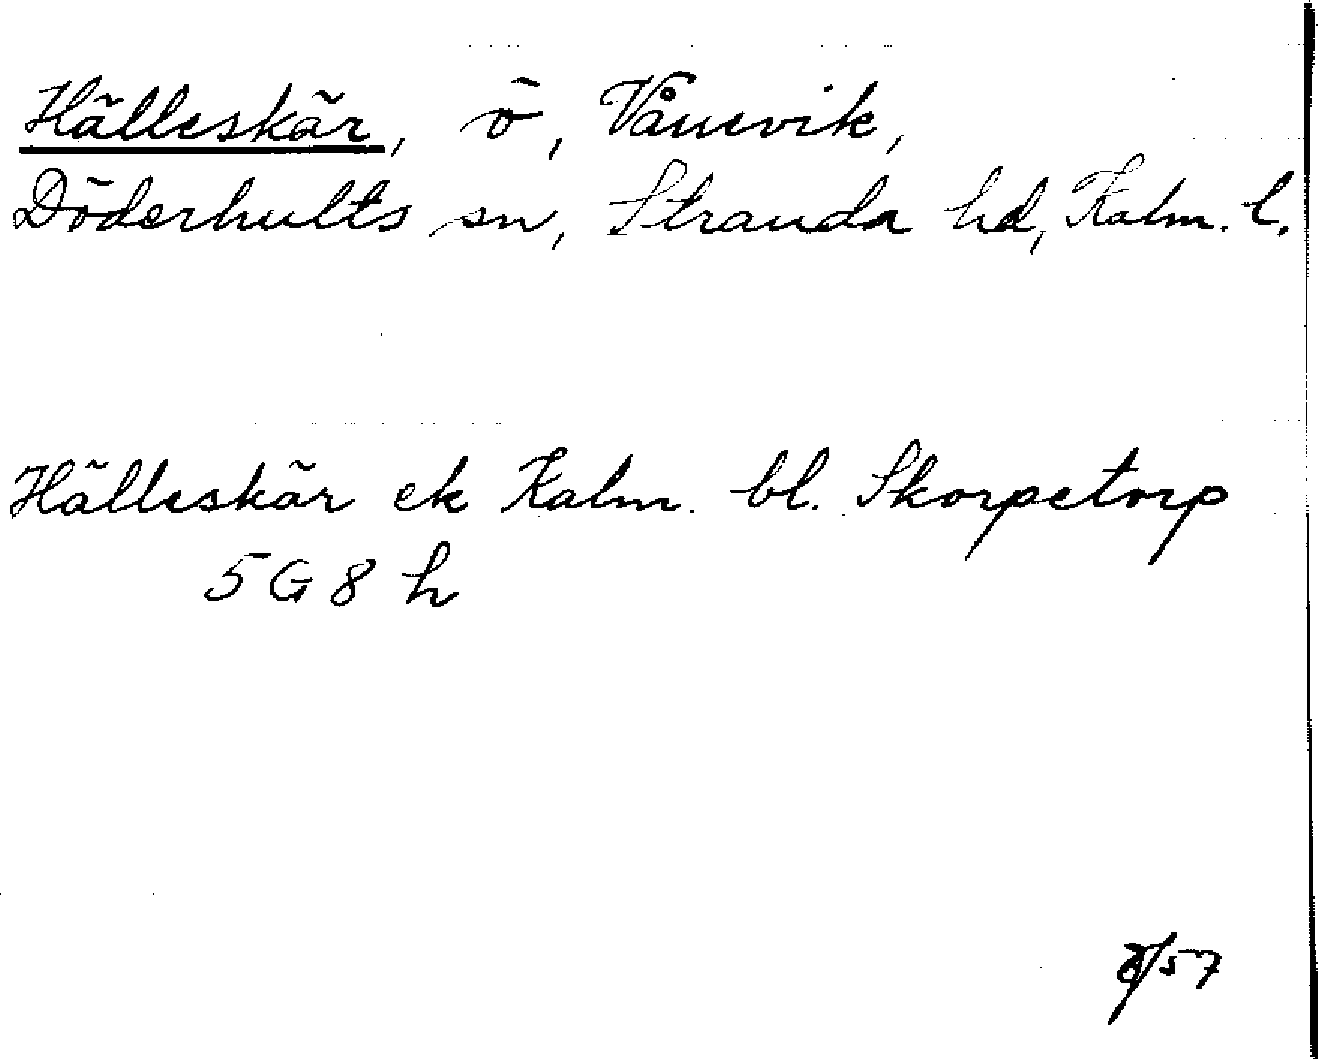 Hälleskär, ö, Vånevik,
Döderhults sn, Stranda hd, Kalm. l.
Hälleskär ek Kalm. bl. Skorpetorp
5 G 8 h
/57